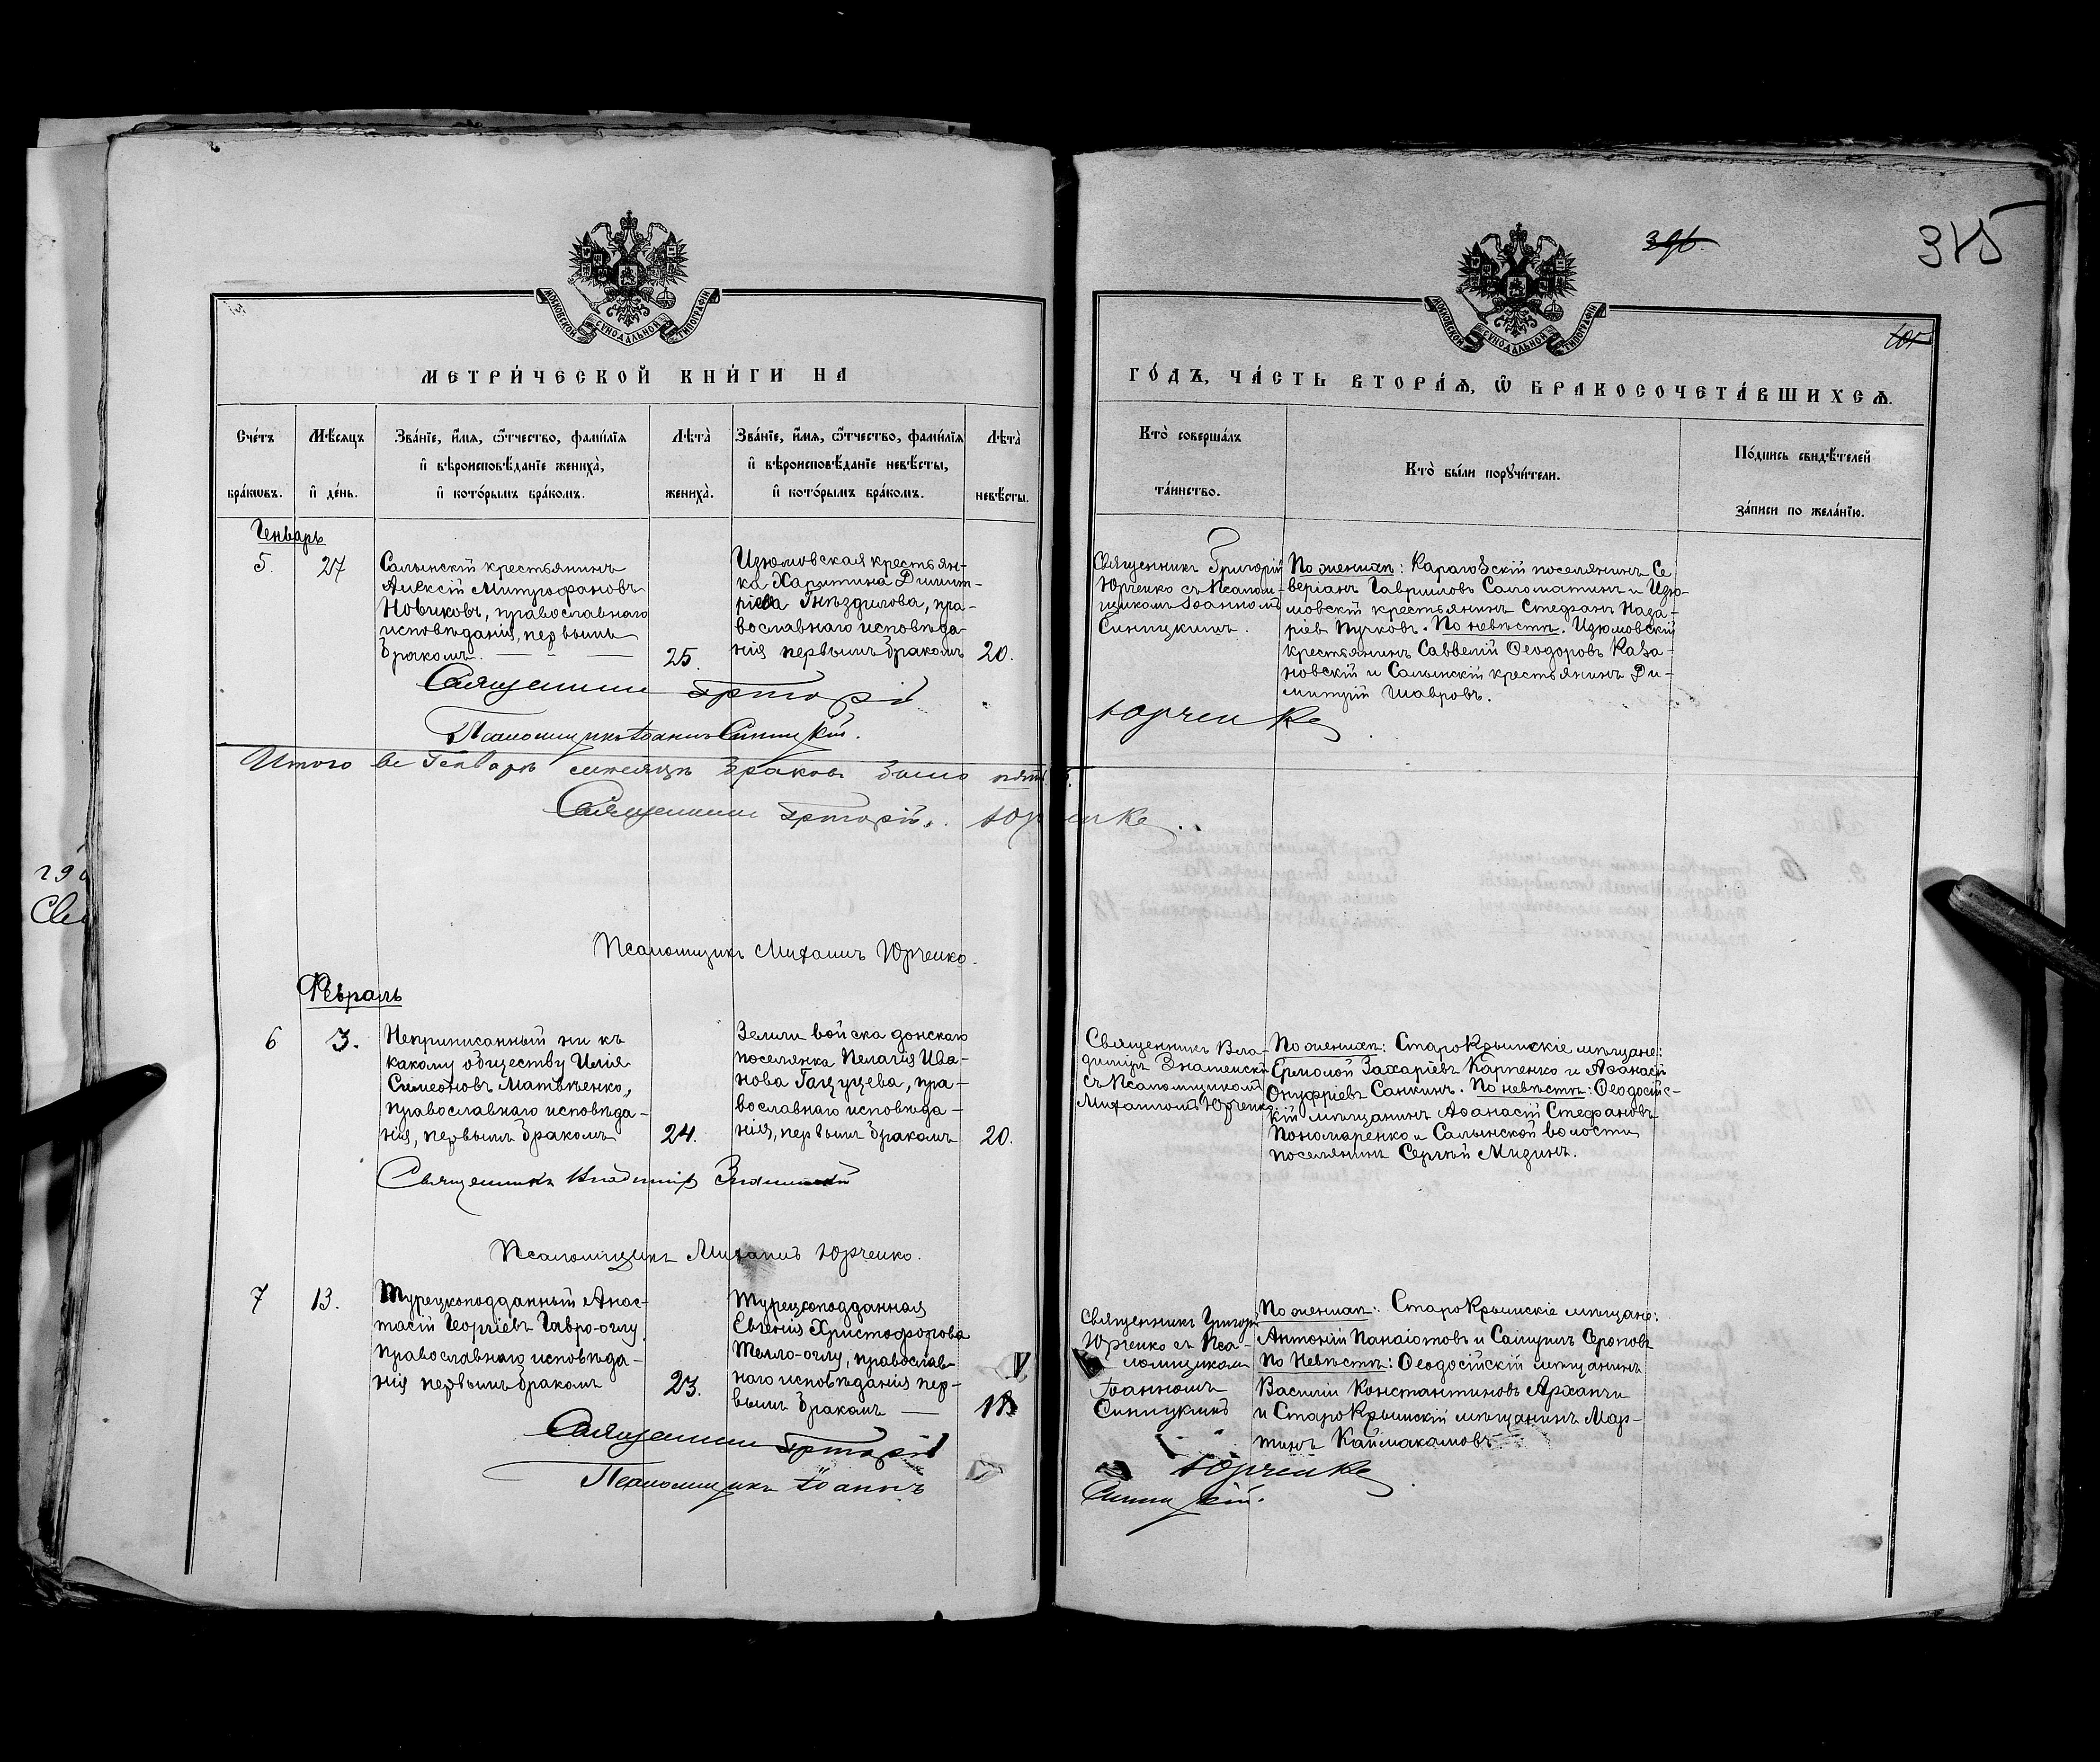 345
МОСКОВСКОЙ СУНОДАЛЬНОЙ ТИПОГРАФІИ
МОСКОВСКОЙ СУНОДАЛЬНОЙ ТИПОГРАФІИ
МЕТРИ́ЧЕСКОЙ КНИ́ГИ НА
Сче́тъ бра́кѡвъ.
Мѣ́сяцъ и҆ де́нь.
Зва́нїе, и҆́мѧ, ѻ҆́тчество, фами́лїѧ
и҆ вѣроисповѣ́данїе жениха̀,
и҆ кото́рымъ бра́комъ.
Лѣта̀ жениха̀.
Зва́нїе, и҆́мѧ, ѻ҆́тчество, фами́лїѧ
и҆ вѣроисповѣ́данїе невѣ́сты,
и҆ кото́рымъ бра́комъ.
Лѣта̀ невѣ́сты.
Генварь
5.
27
Салынскій крестьянинъ
Алексій Митрофановъ
Новиковъ, православнаго
исповѣданія, первымъ
бракомъ.
25.
Изюмовская крестьян-
ка Харитина Димит-
ріева Гнѣздилова, пра-
вославнаго исповѣда-
нія первымъ бракомъ
20.
Священникъ Григорій
Псаломщикъ Іоаннъ Синицкій.
Итого въ Генварѣ мѣсяцѣ браковъ было пять
Священникъ Григорій Юрченко
Псаломщикъ Михаилъ Юрченко.
Февраль
6
3.
Неприписанный ни къ
какому обществу Илія
Симеоновъ Матвѣенко,
православнаго исповѣда-
нія, первымъ бракомъ
24.
Земли войска донскаго
поселянка Пелагія Ива-
нова Гацуцева, пра-
вославнаго исповѣда-
нія, первымъ бракомъ
20.
Священникъ Владиміръ Знаменскій
Псаломщикъ Михаилъ Юрченко.
7
13.
Турецкоподданный Анас-
тасій Георгіевъ Гавро-оглу,
православнаго исповѣда-
нія первымъ бракомъ
23.
Турецкоподданная
Евгенія Христофорова
Телло-оглу, православ-
наго исповѣданія пер-
вымъ бракомъ
18
Священникъ Григорій
Псаломщикъ Іоаннъ
ГО́ДЪ, ЧА́СТЬ ВТОРА́Ѧ, Ѽ БРАКОСОЧЕТА́ВШИХСѦ.
Кто̀ соверша́лъ
та́инство.
Кто̀ бы́ли порꙋчи́тели.
По́дпись свидѣ́телей
за́писи по жела́нїю.
Священникъ Григорій
Юрченко съ Псалом-
щикомъ Іоанномъ
Синицкимъ.
По женихѣ: Карагозскій поселянинъ Се
веріанъ Гавриловъ Саломатинъ и Изю-
мовскій крестьянинъ Стефанъ Наза-
ріевъ Пучковъ. По невѣстѣ. Изюмовскій
крестьянинъ Саввелій Ѳеодоровъ Каза-
новскій и Салынскій крестьянинъ Ди-
митрій Шавровъ.
Юрченко
Священникъ Вла-
диміръ Знаменскій
съ Псаломщикомъ
Михаиломъ Юрченко
По женихѣ: Старокрымскіе мѣщане:
Ермолой Захаріевъ Карпенко и Аѳанасій
Онуфріевъ Санкинъ. По невѣстѣ: Ѳеодосійс-
кій мѣщанинъ Аѳанасій Стефановъ
Пономаренко и Салынской волости
поселянинъ Сергѣй Мизинъ.
Священникъ Григорій
Юрченко съ Пса-
ломщикомъ
Іоанномъ
Синицкимъ
По женихѣ: Старокрымскіе мѣщане:
Антоній Панаіотовъ и Самуилъ Серповъ
По Невѣстѣ: Ѳеодосійскій мѣщанинъ
Василій Константиновъ Архапчи
и Старокрымскій мѣщанинъ Мар-
тинъ Каймакамовъ.
Юрченко
Синицкій.